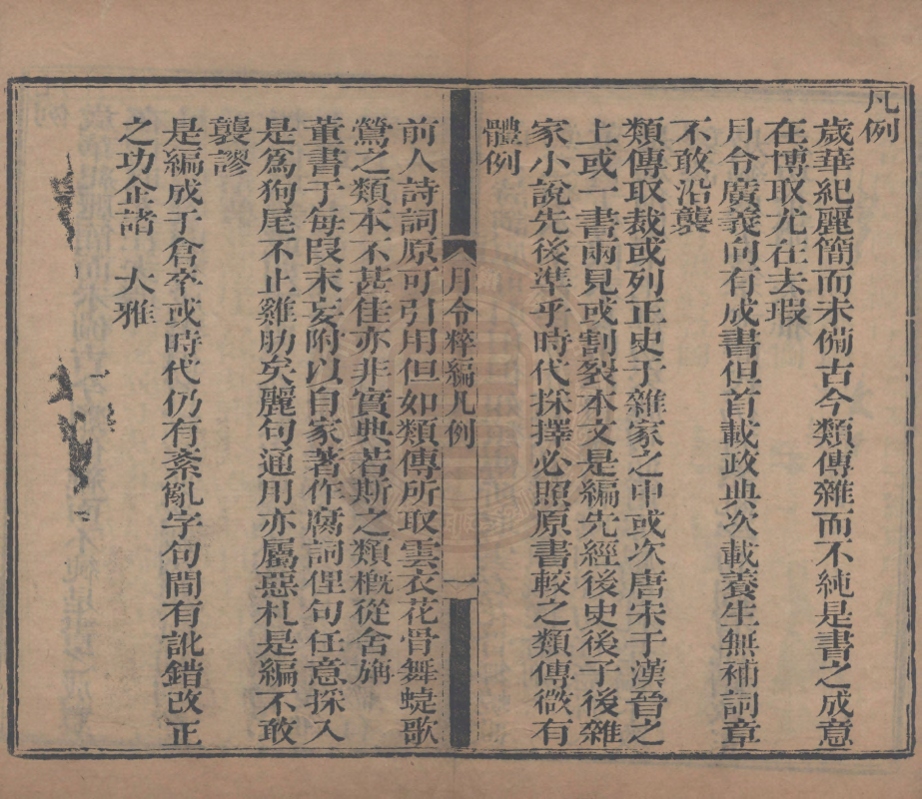 凡例
歲華紀麗簡而未備古今類傳雜而不純是書之成意
在博取尤在去瑕
月令廣義向有成書但首載政典次載養生無補詞章
不敢沿襲
類傳取裁或列正史于雜家之中或次唐宋于漢晉之
上或一書兩見或割裂本文是編先經後史後子後雜
家小說先後準乎時代採擇必照原書較之類傳微有
體例
月令粹編凡例
一
前人詩詞原可引用但如類傳所取雲衣花骨舞蜨歌
鶯之類本不甚佳亦非實典若斯之類概從舍旃
董書于每段末妄附以自家著作腐詞俚句任意採入
是爲狗尾不止雞肋矣麗句通用亦屬惡札是編不敢
襲謬
是編成于倉卒或時代仍有紊亂字句間有訛錯改正
之功企諸　大雅